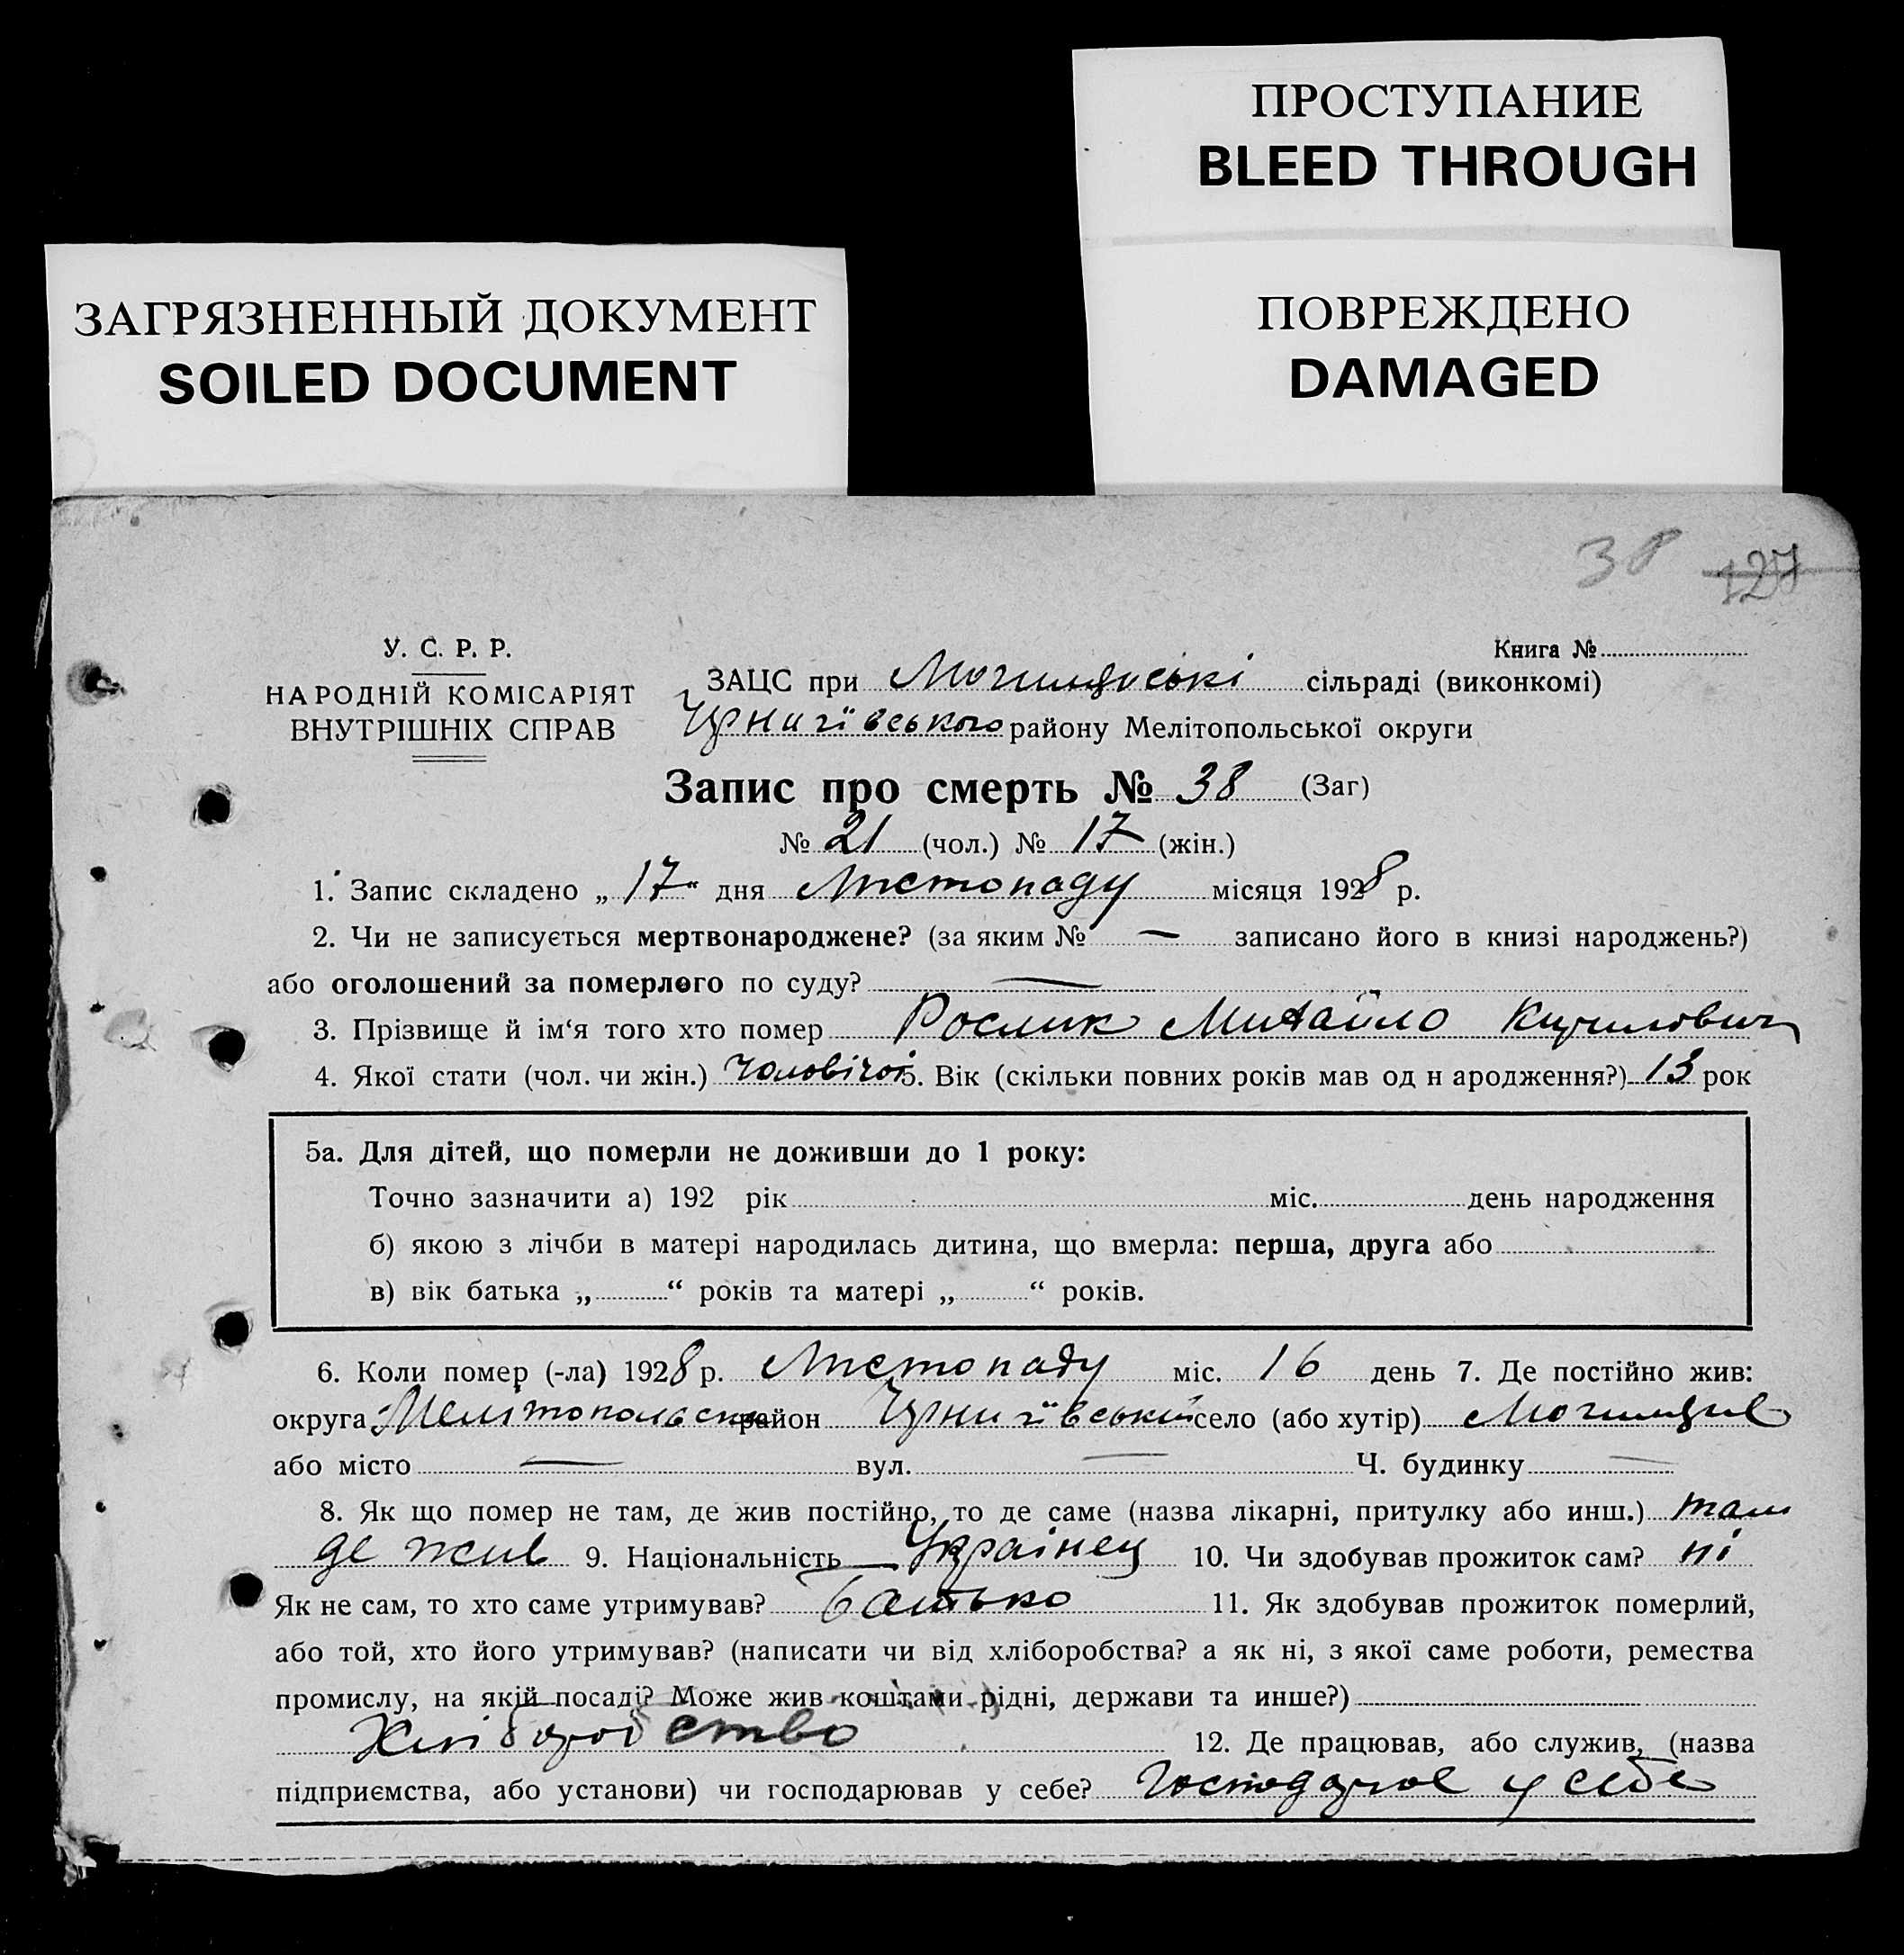 ПРОСТУПАНИЕ
BLEED THROUGH
ЗАГРЯЗНЕННЫЙ ДОКУМЕНТ
SOILED DOCUMENT
ПОВРЕЖДЕНО
DAMAGED
38 127
У. С. Р. Р.
НАРОДНІЙ КОМІСАРІЯТ
ВНУТРІШНІХ СПРАВ
Книга №
ЗАЦС при сільраді (виконкомі)
Чернигівського району Мелітопольської округи
Запис про смерть № 38 (Заг)
№ 21 (чол.) № 17 (жін.)
1. Запис складено „17“ дня Листопаду місяця 1928 р.
2. Чи не записується мертвонароджене? (за яким № — записано його в книзі народжень?)
або оголошений за померлого по суду? —
3. Прізвище й ім‘я того хто помер Рослик Михайло Кирилович
4. Якої стати (чол. чи жін.) Чоловічої 5. Вік (скільки повних років мав од н ародження?) 13 рок
5а. Для дітей, що померли не доживши до 1 року:
Точно зазначити а) 192 рік міс. день народження
б) якою з лічби в матері народилась дитина, що вмерла: перша, друга або
в) вік батька „ “ років та матері „ “ років.
6. Коли помер (-ла) 1928 р. Листопаду міс. 16 день 7. Де постійно жив:
округа Мелітопольська район Чернигівський село (або хутір)
або місто — вул. — Ч. будинку —
8. Як що помер не там, де жив постійно, то де саме (назва лікарні, притулку або инш.) там
де жив 9. Національність Українец 10. Чи здобував прожиток сам? ні
Як не сам, то хто саме утримував? батько 11. Як здобував прожиток померлий,
або той, хто його утримував? (написати чи від хліборобства? а як ні, з якої саме роботи, ремества
промислу, на якій посаді? Може жив коштами рідні, держави та инше?)
Хліборобство 12. Де працював, або служив, (назва
підприємства, або установи) чи господарював у себе? Господарює у себе